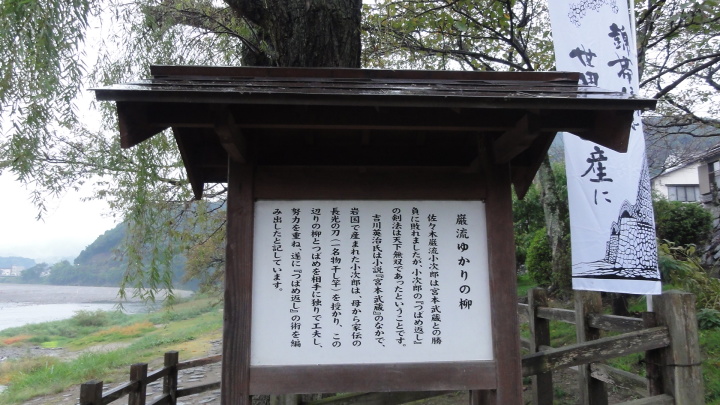 巌流ゆかりの柳
佐々木巌流小次郎は宮本武蔵との勝
負に敗れましたが、小次郎の『つばめ返し』
の剣法は天下無双であったということです。
吉川英治氏は小説『宮本武蔵』のなかで、
岩国で産まれた小次郎は、母から家伝の
長光の刀(一名物干し竿)を授かり、この
辺りの柳とつばめを相手に独りで工夫し、
努力を重ね、遂に『つばめ返し』の術を編
み出したと記しています。
錦帯
世
産に